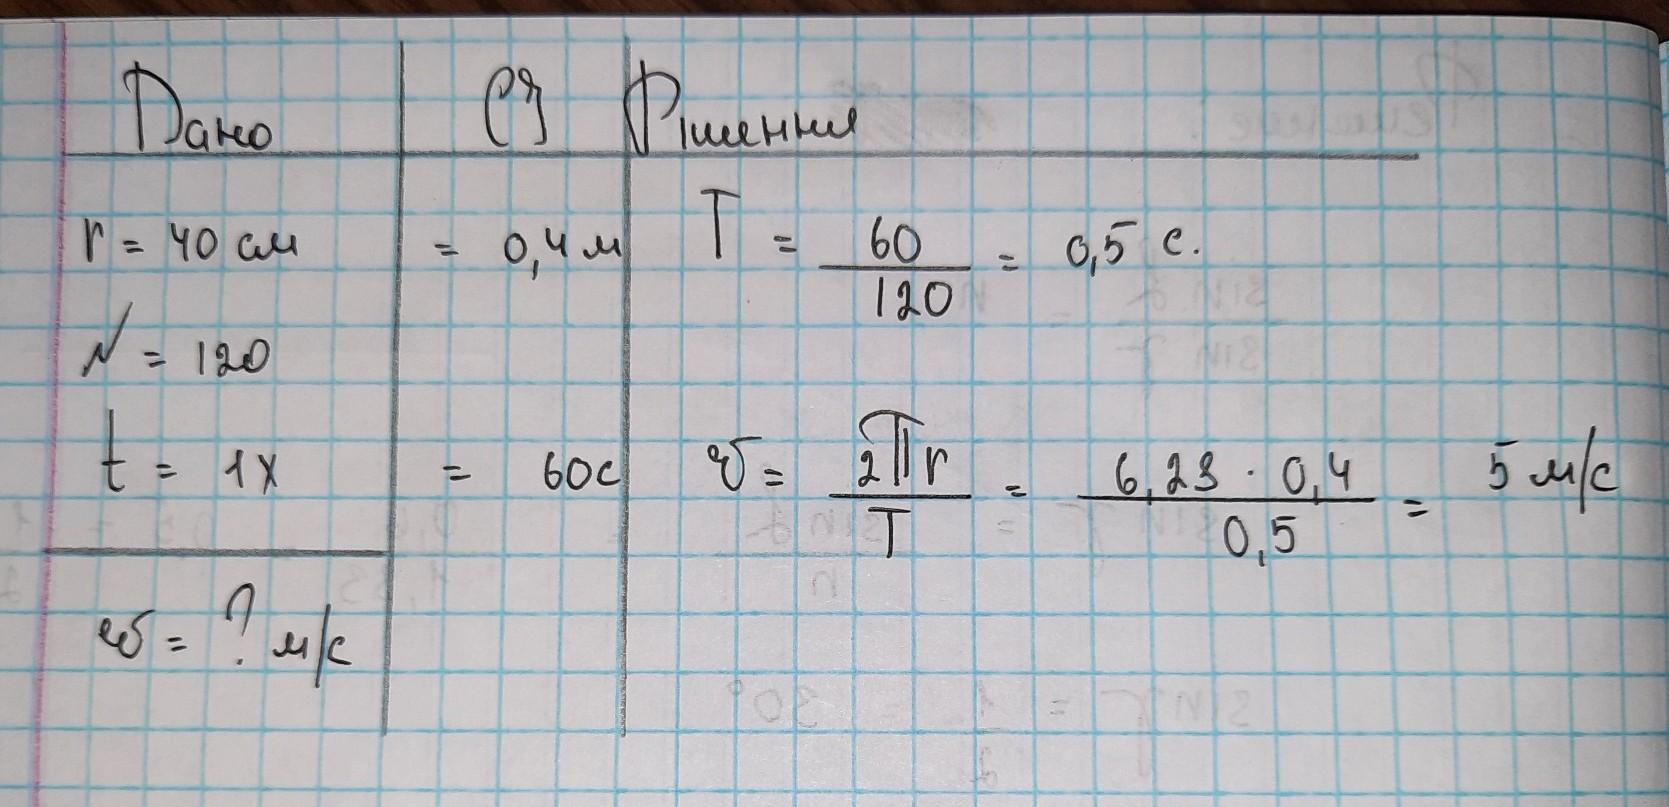 Дано СІ Рішення
r = 40 см = 0,4 м T = 60/120 = 0,5 с.
N = 120
t = 1х = 60с v = 2πr/T = 6,28 · 0,4/0,5 = 5 м/с
v = ? м/с